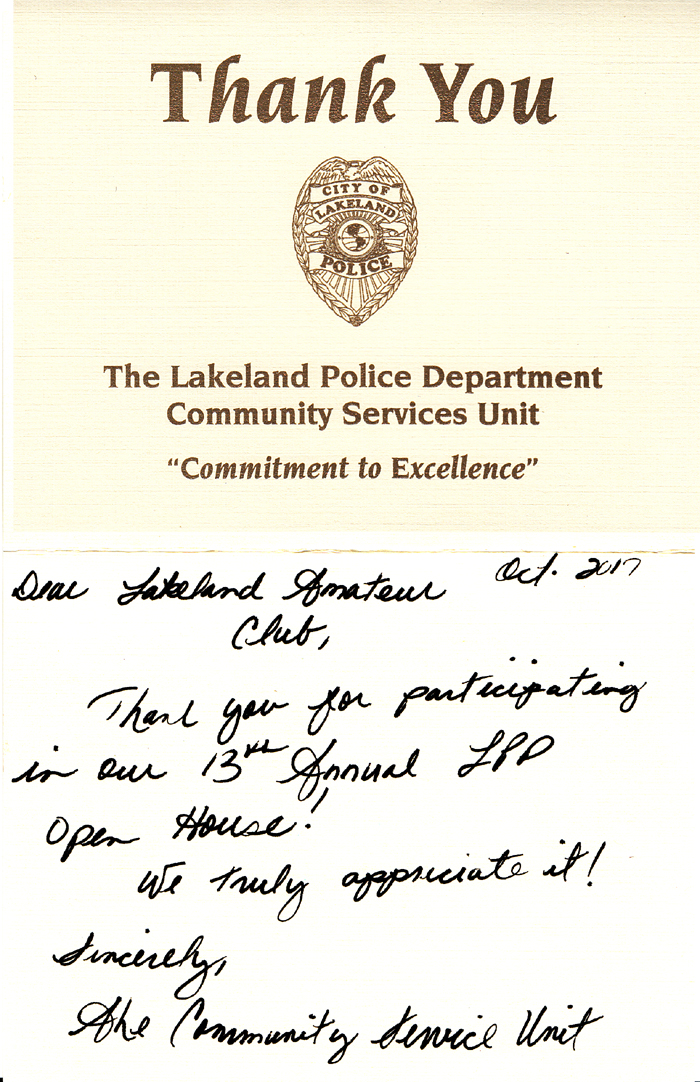 Thank You
CITY OF
LAKELAND
POLICE
The Lakeland Police Department
Community Services Unit
“Commitment to Excellence”
Oct. 2017
Dear Lakeland Amateur
Club,
Thank you for participating
in our 13th Annual LPD
Open House!
We truly appriciate it!
Sincerely,
The Community Service Unit